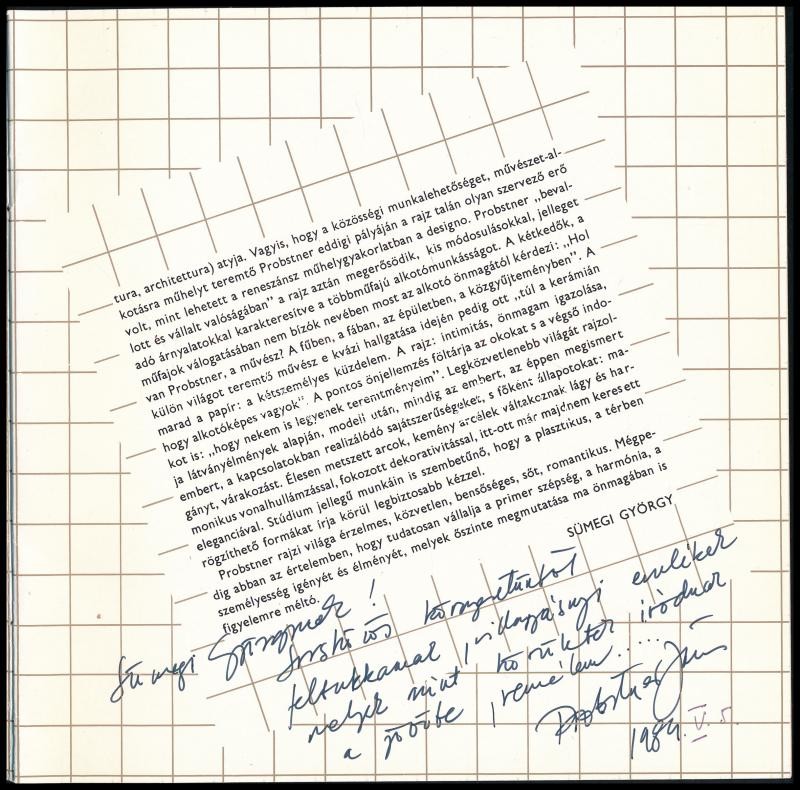 tura, architettura) atyja. Vagyis, hogy a közösségi munkalehetőséget, művészet-al-
kotásra műhelyt teremtő Probstner eddigi pályáján a rajz talán olyan szervező erő
volt, mint lehetett a reneszánsz műhelygyakorlatban a designo. Probstner „beval-
lott és vállalt valóságában” a rajz aztán megerősödik, kis módosulásokkal, jelleget
adó árnyalatokkal karakteresítve a többműfajú alkotómunkásságot. A kétkedők, a
műfajok válogatásában nem bízók nevében most az alkotó önmagától kérdezi: „Hol
van Probstner, a művész? A fűben, a fában, az épületben, a közgyűjteményben”. A
külön világot teremtő művész e kvázi hallgatása idején pedig ott „túl a kerámián
marad a papír: a kétszemélyes küzdelem. A rajz: intimitás, önmagam igazolása,
hogy alkotóképes vagyok”. A pontos önjellemzés föltárja az okokat s a végső indo-
kot is: „hogy nekem is legyenek teremtményeim”. Legközvetlenebb világát rajzol-
ja látványélmények alapján, modell után, mindig az embert, az éppen megismert
embert, a kapcsolatokban realizálódó sajátszerűségeket, s főként állapotokat: ma-
gányt, várakozást. Élesen metszett arcok, kemény arcélek váltakoznak lágy és har-
monikus vonalhullámzással, fokozott dekorativitással, itt-ott már majdnem keresett
eleganciával. Stúdium jellegű munkáin is szembetűnő, hogy a plasztikus, a térben
rögzíthető formákat írja körül legbiztosabb kézzel.
Probstner rajzi világa érzelmes, közvetlen, bensőséges, sőt, romantikus. Mégpe-
dig abban az értelemben, hogy tudatosan vállalja a primer szépség, a harmónia, a
személyesség igényét és élményét, melyek őszinte megmutatása ma önmagában is
figyelemre méltó.
SÜMEGI GYÖRGY
Sümegi Györgynek!
emlékek
melyek mint
a jövőbe remélem.....
Probstner János
1984. V. 5.